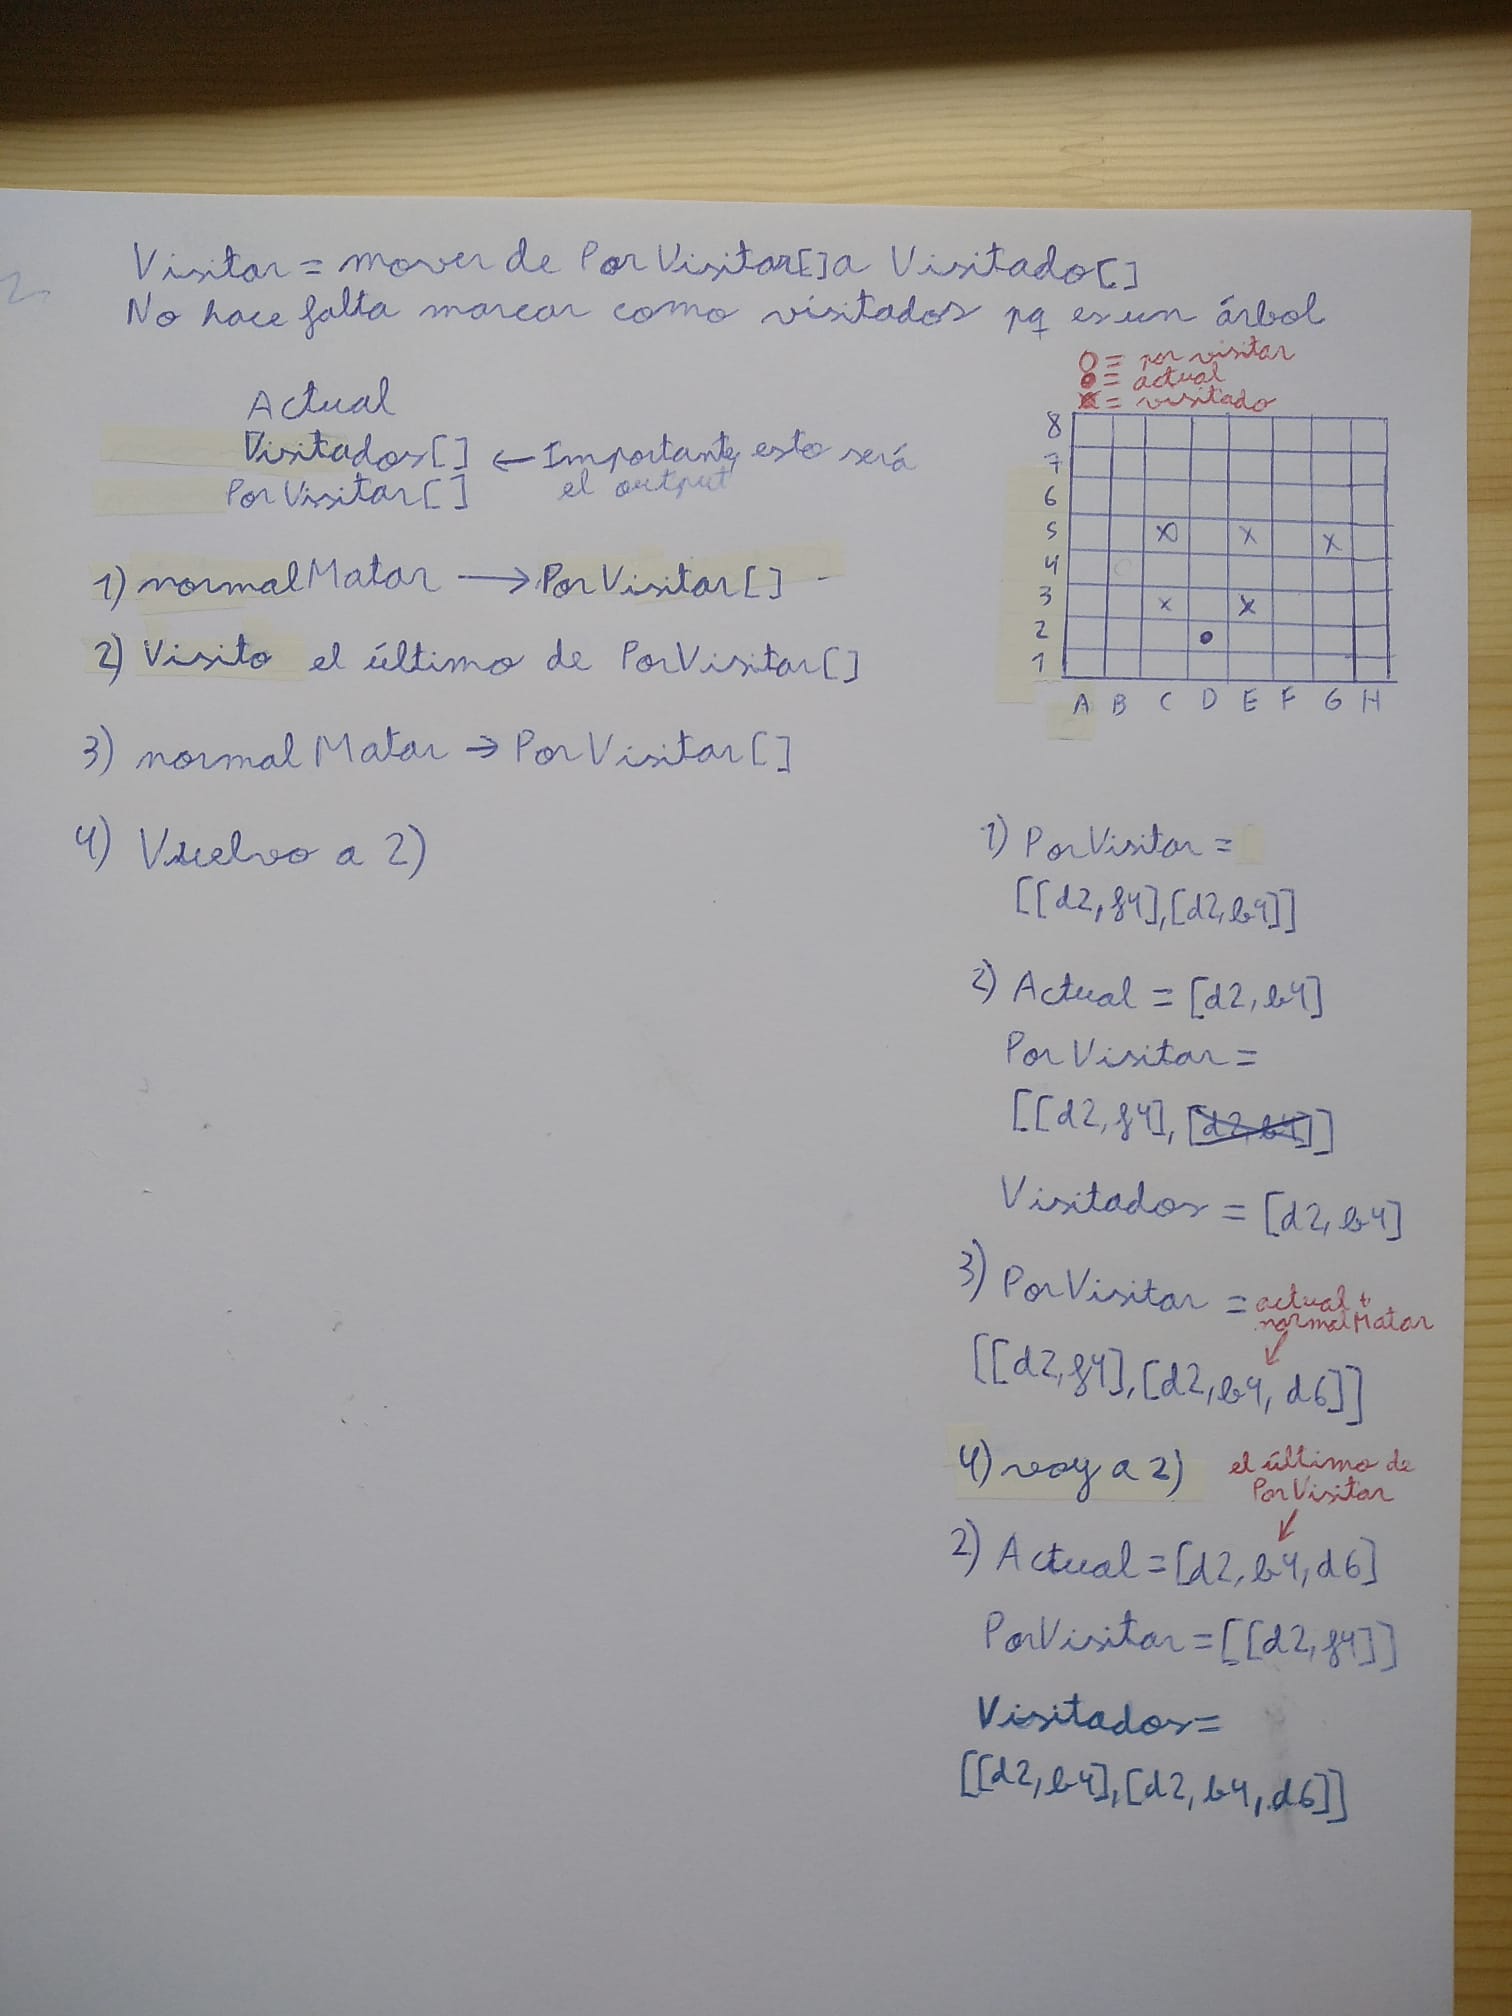 Visitar = mover de PorVisitar[] a Visitado[]
No hace falta marcar como visitados pq es un árbol
Actual
Visitados[] ← Importante, esto será
el output
PorVisitar[]
1) normalMatar → PorVisitar[]
2) Visito el último de PorVisitar[]
3) normalMatar → PorVisitar[]
4) Vuelvo a 2)
O = por visitar
● = actual
x = visitado
8
7
6
5 x x x
4
3 x x
2
1
A B C D E F G H
1) PorVisitar =
[[d2, f4], [d2, b4]]
2) Actual = [d2, b4]
PorVisitar =
[[d2, f4], [d2, b4]]
Visitados = [d2, b4]
3) PorVisitar = actual +
normalMatar
[[d2, f4], [d2, b4, d6]]
4) voy a 2)
el último de
PorVisitar
2) Actual = [d2, b4, d6]
PorVisitar = [[d2, f4]]
Visitados =
[[d2, b4], [d2, b4, d6]]